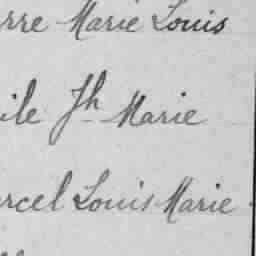 rre Marie Louis
ile Jh Marie
rcel Louis Marie